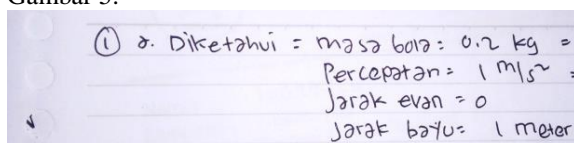 ① a. Diketahui = masa bola: 0.2 kg =
Percepatan = 1 m/s²
Jarak evan = 0
Jarak bayu = 1 meter